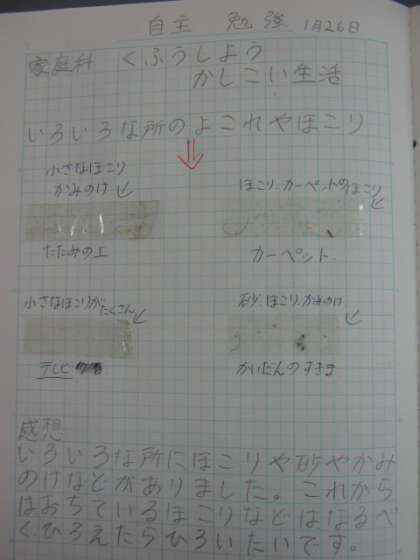 自主 勉強 1月26日
家庭科 くふうしよう
かしこい生活
いろいろな所のよごれやほこり
小さなほこり
かみのけ
たたみの上
ほこり、カーペットのほこり
カーペット
小さなほこりがたくさん
テレビ
砂、ほこり、かみのけ
かいだんのすきま
感想
いろいろな所にほこりや砂やかみ
のけなどがありました。これから
はおちているほこりなどはなるべ
くひろえたらひろいたいです。